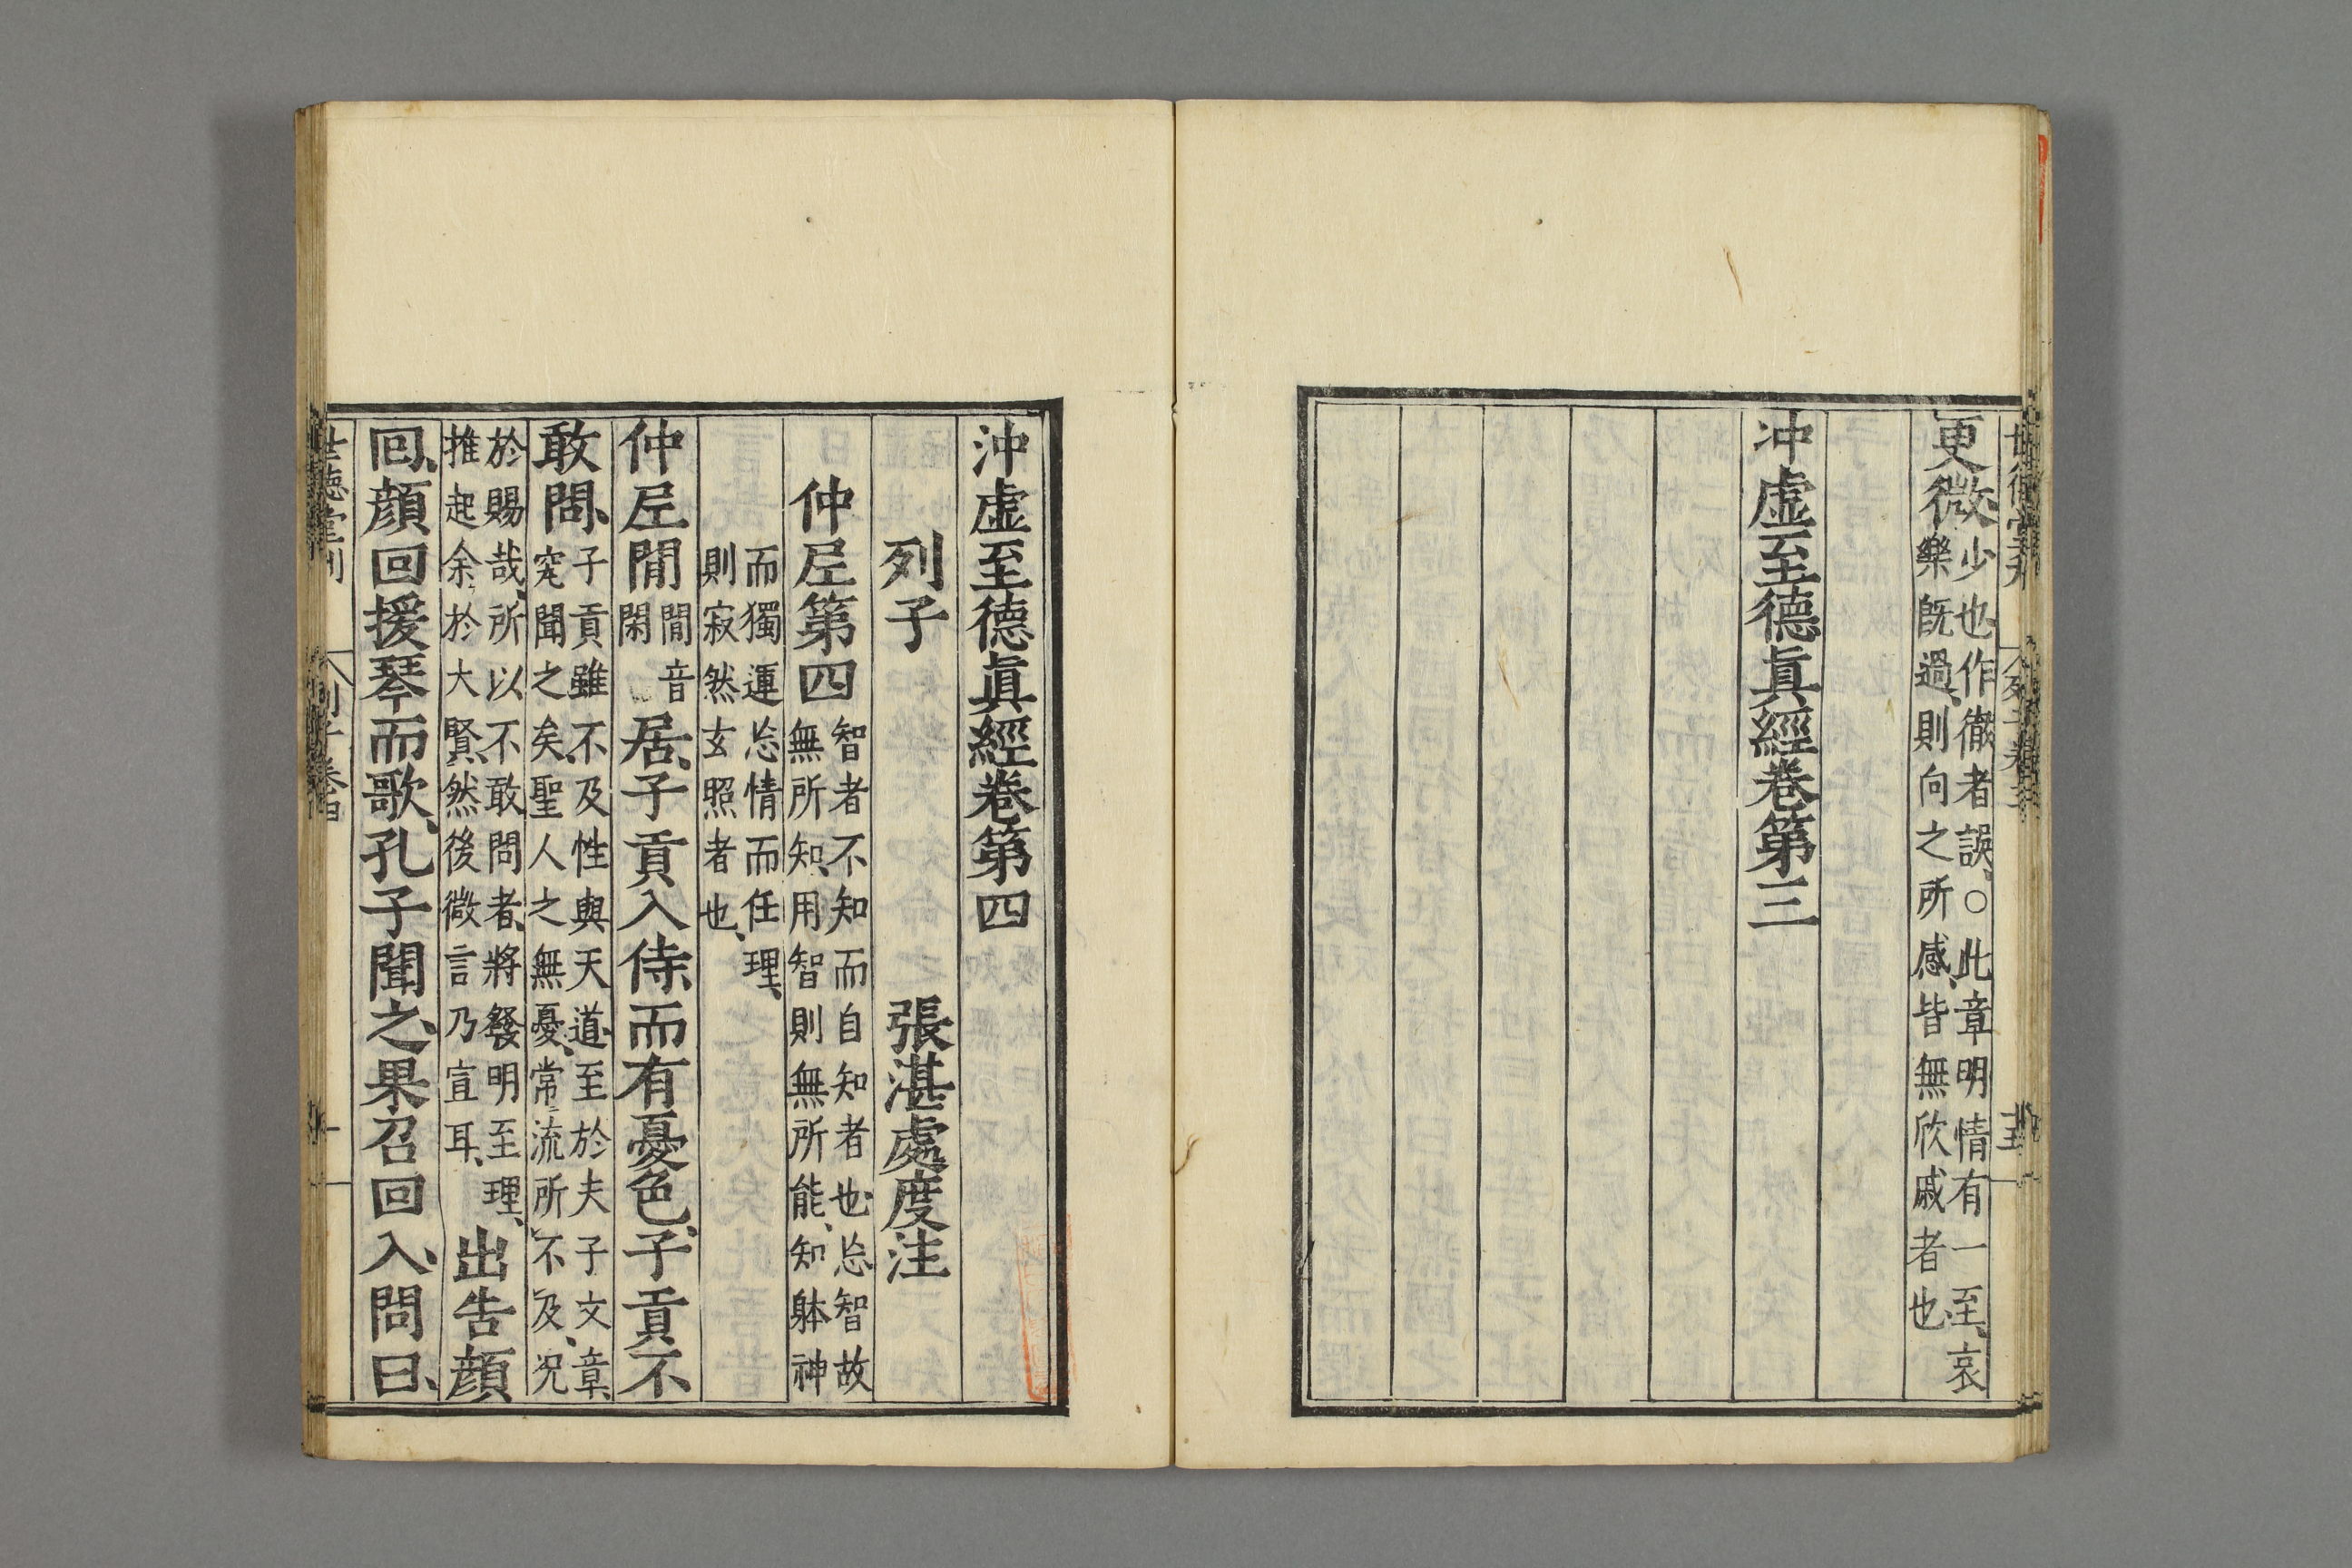 世德堂刊 列子卷三 十五
更微少也作徹者誤○此章明情有一至哀
樂既過則向之所感皆無欣戚者也
沖虛至德眞經卷第三
沖虛至德眞經卷第四
列子 張湛處度注
仲尼第四智者不知而自知者也忘智故
無所知用智則無所能知躰神
而獨運忘情而任理、
則寂然玄照者也、
仲尼閒閒音閑居、子貢入侍、而有憂色、子貢不
敢問、子貢雖不及性與天道、至於夫子文章、
究聞之矣、聖人之無憂、常流所不及、況
於賜哉、所以不敢問者、將發明至理、
推起余於大賢、然後微言乃宣耳、出告顏
回、顏回援琴而歌、孔子聞之、果召回入、問曰、
世德堂刊 列子卷四 一